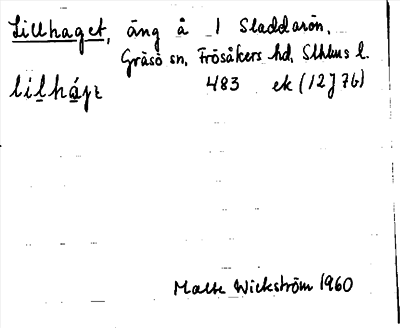 Lillhaget, äng å 1 Sladdarön,
Gräsö sn, Frösåkers hd, Sthlms l.
lilhágɛ 483 ek (12J7b)
Malte Wickström 1960